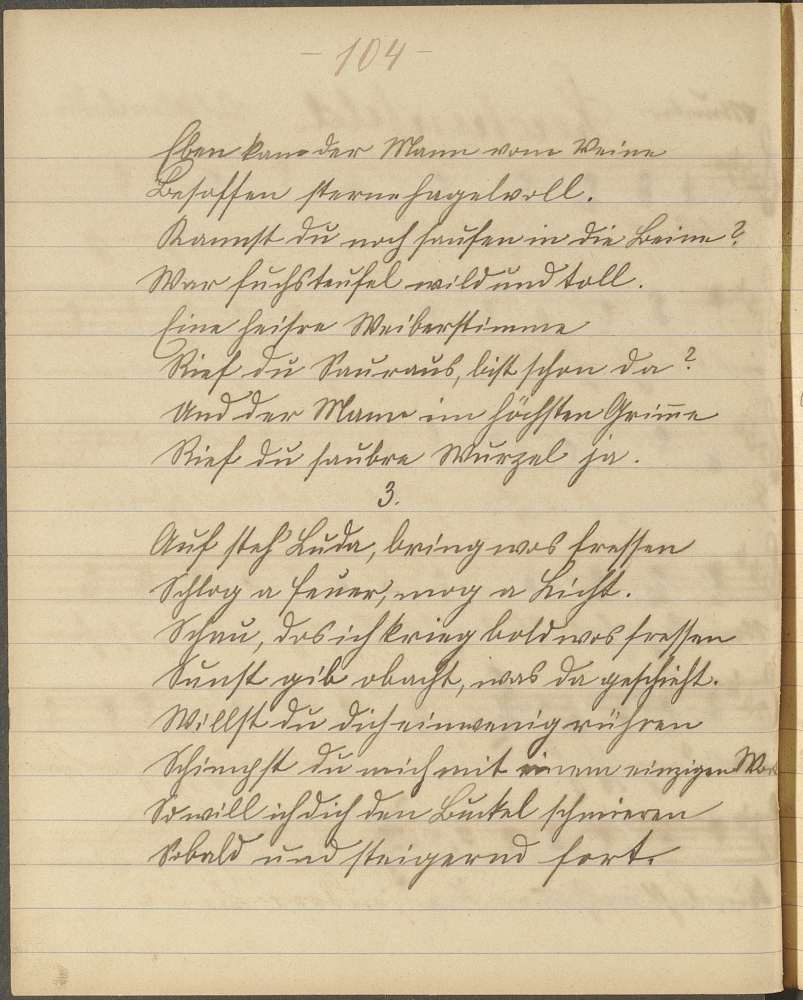 - 104 -
Eben kam der Mann vom Weine
Besoffen sternehagelvoll.
Kannst du noch saufen in die Beine?
War fuchsteufel wild und toll.
Eine heisre Weiberstimme
Rief du Sauraus, bist schon da?
Und der Mann im höchsten Grimme
Rief du saubre Wurzel ja.
3.
Auf steh' Luda, bring wos fressen
Schlog a Feuer, mog a Licht.
Schau, das ich krieg bold wos fressen
Sunst gib obacht, was da geschieht.
Willst du dich ein wenig rühren
Schimpst du mich mit einem einzigen Wo
So will ich dich den Buckel schmieren
Sobald und steigernd fort.